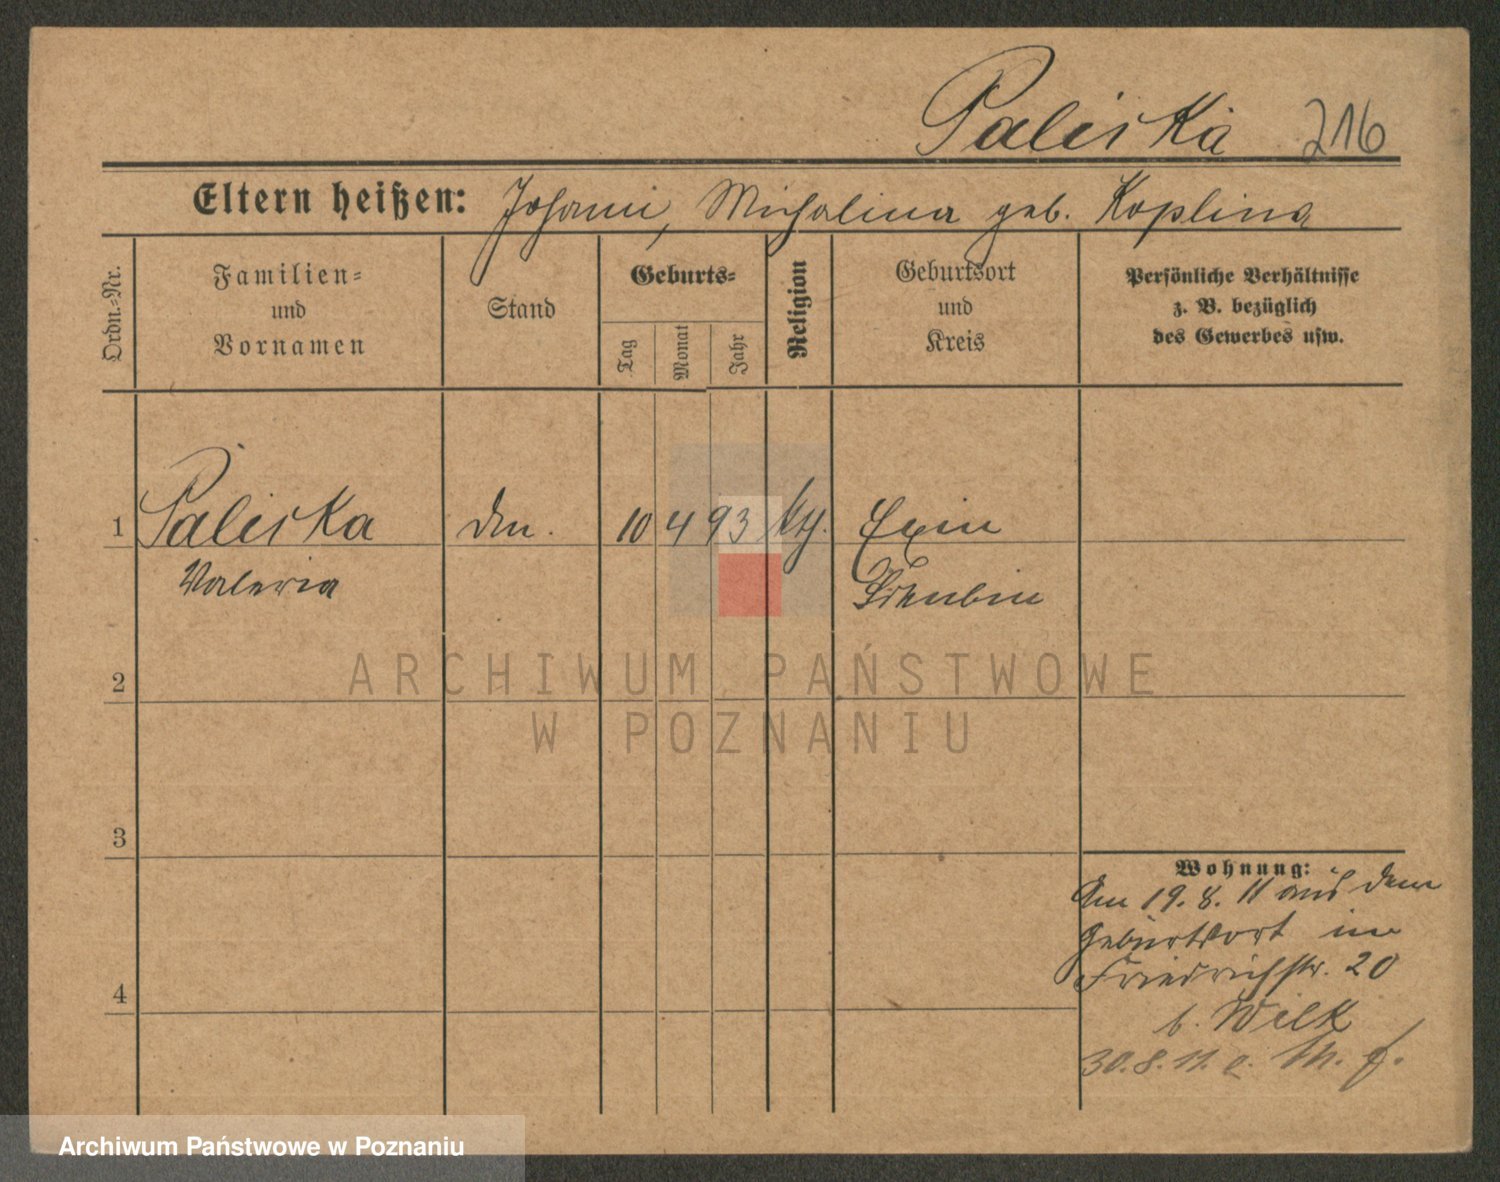 Paliska 216
Eltern heißen: Johann, Michalina geb. Koplina
Ordn.-Nr.
Familien-
und
Vornamen
Stand
Geburts-
Tag
Monat
Jahr
Religion
Geburtsort
und
Kreis
Persönliche Verhältnisse
z. B. bezüglich
des Gewerbes usw.
1 Paliska 10 4 93 kth. Exin
Valeria Schubin
ARCHIWUM PAŃSTWOWE
2
W POZNANIU
3
Wohnung:
Am 19. 8. 11 aus dem
Geburtsort in
Friedrichstr. 20
4
b. Wilk
30. 8. 11.
Archiwum Państwowe w Poznaniu